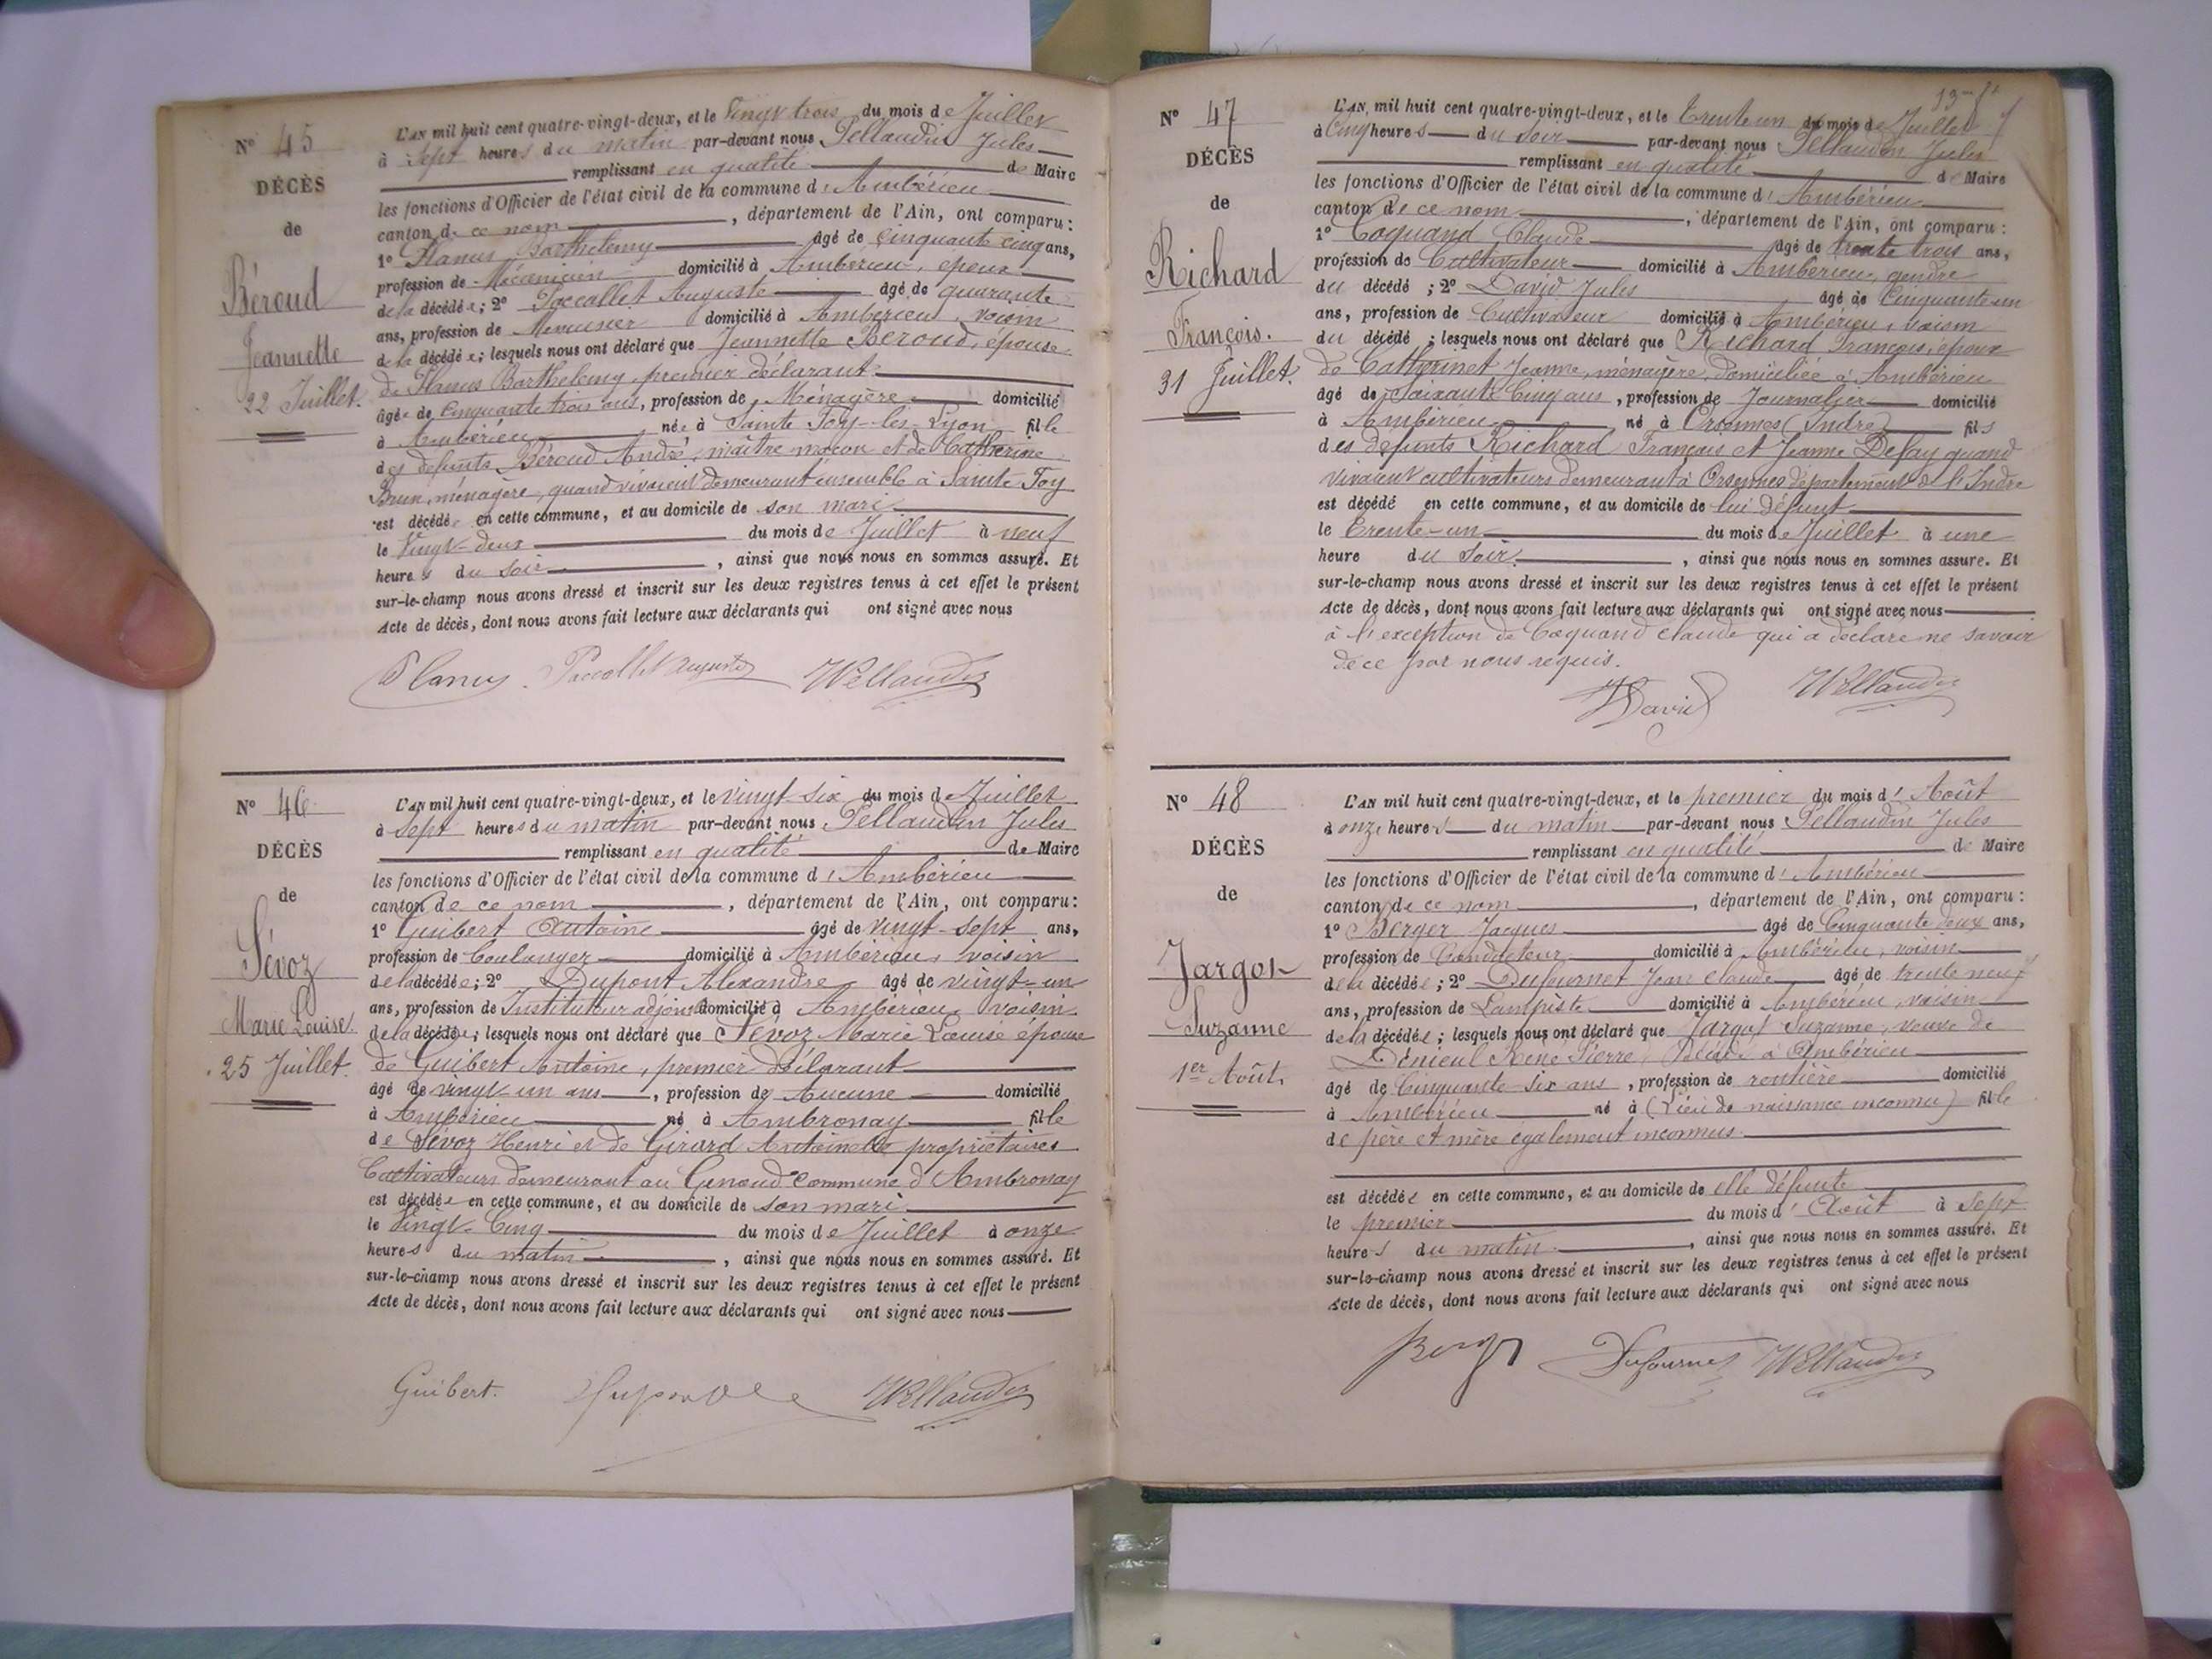 N° 45
DÉCÈS
de
Béroud
Jeannette
22 Juillet.
L'AN mil huit cent quatre-vingt-deux, et le Vingt trois du mois de Juillet
à Sept heures du matin par-devant nous Pellaudin Jules
remplissant en qualité de Maire
les fonctions d'Officier de l'état civil de la commune d'Ambérieu
canton de ce nom, département de l'Ain, ont comparu:
1° Planus Barthelemy âgé de cinquante cinq ans,
profession de Mécanicien domicilié à Ambérieu, époux
de la décédée; 2° Paccallet Auguste âgé de quarante
ans, profession de Menuisier domicilié à Ambérieu, voisin
de la décédée; lesquels nous ont déclaré que Jeannette Béroud, épouse
de Planus Barthelemy premier déclarant
âgée de Cinquante trois ans, profession de Ménagère domicilié
à Ambérieu née à Sainte Foy-lès-Lyon fille
des défunts Béroud André, maître maçon et de Catherine
Brun, ménagère, quand vivaient demeurant ensemble à Sainte Foy
est décédée en cette commune, et au domicile de son mari
le Vingt-deux du mois de Juillet à neuf
heures du soir, ainsi que nous nous en sommes assuré. Et
sur-le-champ nous avons dressé et inscrit sur les deux registres tenus à cet effet le présent
Acte de décès, dont nous avons fait lecture aux déclarants qui ont signé avec nous
Planus Paccallet Auguste Pellaudin
N° 46
DÉCÈS
de
Sévoz
Marie Louise
25 Juillet.
L'AN mil huit cent quatre-vingt-deux, et le Vingt-six du mois de Juillet
à Sept heures du matin par-devant nous Pellaudin Jules
remplissant en qualité de Maire
les fonctions d'Officier de l'état civil de la commune d'Ambérieu
canton de ce nom, département de l'Ain, ont comparu:
1° Guibert Antoine âgé de vingt-sept ans,
profession de Boulanger domicilié à Ambérieu, voisin
de la décédée; 2° Dupont Alexandre âgé de vingt-un
ans, profession de Instituteur adjoint domicilié à Ambérieu, voisin
de la décédée; lesquels nous ont déclaré que Sévoz Marie Louise épouse
de Guibert Antoine, premier déclarant
âgé de vingt-un ans, profession de Aucune domicilié
à Ambérieu né à Ambronay fille
de Sévoz Henri et de Girard Antoinette propriétaires
Cultivateurs demeurant au Genoud Commune d'Ambronay
est décédée en cette commune, et au domicile de son mari
le Vingt-Cinq du mois de Juillet à onze
heures du matin, ainsi que nous nous en sommes assuré. Et
sur-le-champ nous avons dressé et inscrit sur les deux registres tenus à cet effet le présent
Acte de décès, dont nous avons fait lecture aux déclarants qui ont signé avec nous
Guibert. Dupont Pellaudin
N° 47
DÉCÈS
de
Richard
François.
31 Juillet.
L'AN, mil huit cent quatre-vingt-deux, et le trente un du mois de Juillet
à Cinq heures du soir par-devant nous Pellaudin Jules
remplissant en qualité de Maire
les fonctions d'Officier de l'état civil de la commune d'Ambérieu
canton de ce nom, département de l'Ain, ont comparu:
1° Coquand Claude âgé de trente trois ans,
profession de Cultivateur domicilié à Ambérieu, gendre
du décédé; 2° David Jules âgé de Cinquante-un
ans, profession de Cultivateur domicilié à Ambérieu, voisin
du décédé; lesquels nous ont déclaré que Richard François, époux
de Catherinet Jeanne, ménagère, domiciliée à Ambérieu
âgé de Soixante Cinq ans, profession de Journalier domicilié
à Ambérieu né à Orsennes (Indre) fils
des défunts Richard François et Jeanne Defay quand
vivaient cultivateurs demeurant à Orsennes département de l'Indre
est décédé en cette commune, et au domicile de lui défunt
le trente-un du mois de Juillet à une
heure du soir, ainsi que nous nous en sommes assuré. Et
sur-le-champ nous avons dressé et inscrit sur les deux registres tenus à cet effet le présent
Acte de décès, dont nous avons fait lecture aux déclarants qui ont signé avec nous
à l'exception de Coquand Claude qui a déclaré ne savoir
de ce par nous requis.
David Pellaudin
N° 48
DÉCÈS
de
Jargot
Suzanne
1er Août
L'AN mil huit cent quatre-vingt-deux, et le premier du mois d'Août
à onze heures du matin par-devant nous Pellaudin Jules
remplissant en qualité de Maire
les fonctions d'Officier de l'état civil de la commune d'Ambérieu
canton de ce nom, département de l'Ain, ont comparu:
1° Berger Jacques âgé de Cinquante deux ans,
profession de Conducteur domicilié à Ambérieu, voisin
de la décédée; 2° Dufournet Jean Claude âgé de trente neuf
ans, profession de Lampiste domicilié à Ambérieu, voisin
de la décédée; lesquels nous ont déclaré que Jargot Suzanne, veuve de
Dénieul René Pierre, décédé à Ambérieu
âgé de Cinquante-six ans, profession de rentière domicilié
à Ambérieu né à (Lieu de naissance inconnu) fille
de père et mère également inconnus.
est décédée en cette commune, et au domicile de elle défunte
le premier du mois d'Août à Sept
heures du matin, ainsi que nous nous en sommes assuré. Et
sur-le-champ nous avons dressé et inscrit sur les deux registres tenus à cet effet le présent
Acte de décès, dont nous avons fait lecture aux déclarants qui ont signé avec nous
Berger Dufournet Pellaudin